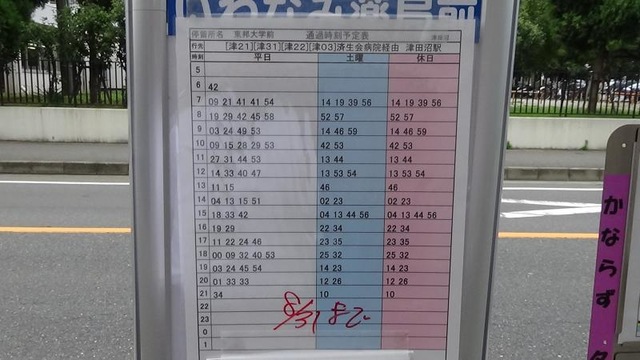 いわなみ薬局前
停留所名 東邦大学前 通過時刻予定表
行先 [津21][津31][津22][津03]済生会病院経由 津田沼駅
時刻 平日 土曜 休日
5
6 42
7 09 21 41 41 54 14 19 39 56 14 19 39 56
8 19 29 42 45 58 52 57 52 57
9 03 24 49 53 14 46 59 14 46 59
10 09 15 28 29 53 42 53 42 53
11 27 31 44 53 13 44 13 44
12 14 33 40 47 13 53 54 13 53 54
13 11 15 46 46
14 04 13 15 51 02 23 02 23
15 18 33 42 04 13 44 56 04 13 44 56
16 19 29 22 34 22 34
17 11 22 24 46 23 35 23 35
18 00 09 32 40 53 25 32 25 32
19 03 24 45 54 14 23 14 23
20 01 33 33 12 26 12 26
21 34 10 10
22
23
0
1
8/31まで
かならず